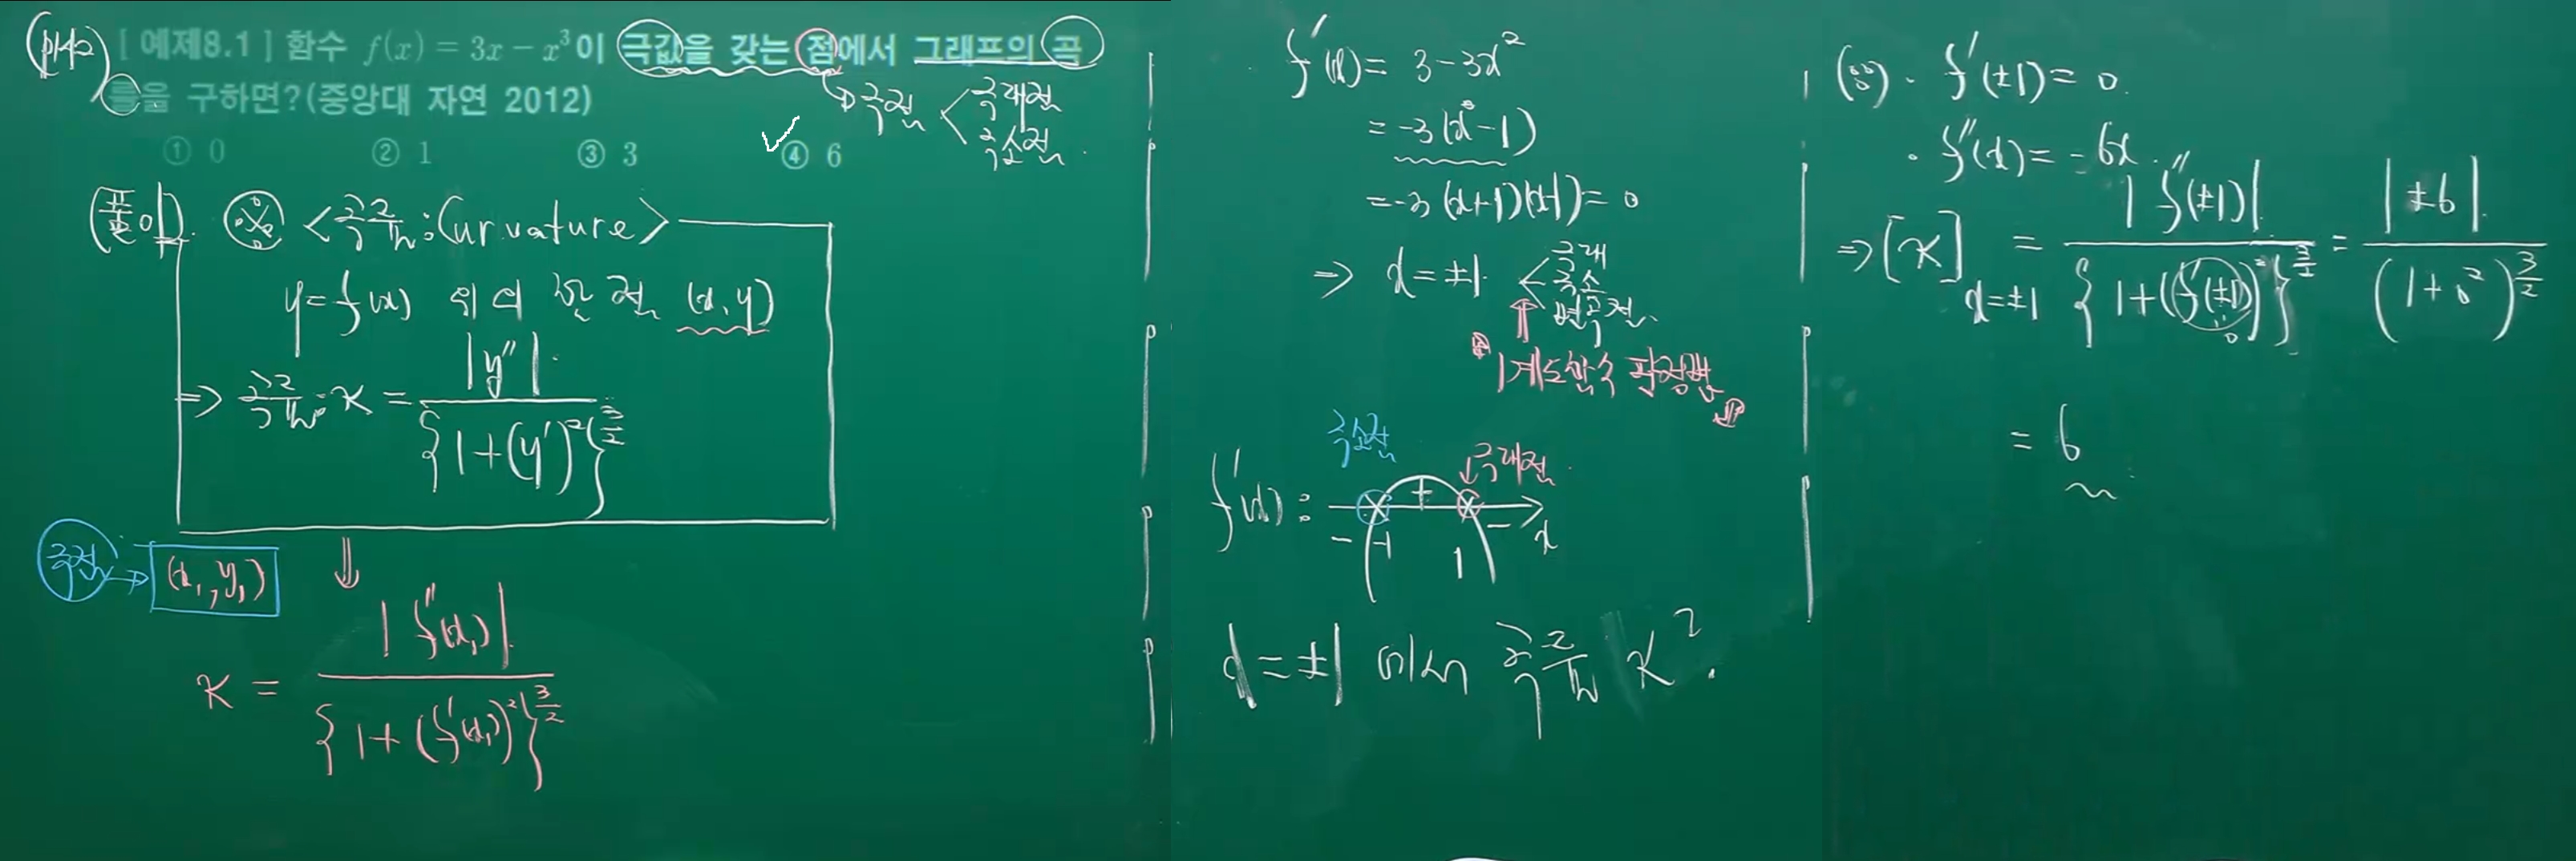 (p142) [ 예제8.1 ] 함수 f(x) = 3x − x³이 극값을 갖는 점에서 그래프의 곡
률을 구하면?(중앙대 자연 2012)
→ 극점 < 극대점
극소점
① 0 ② 1 ③ 3 ✓④ 6
(풀이) ※ <곡률 : Curvature>
y = f(x) 위의 한 점 (x, y)
⇒ 곡률 : κ = |y''| / {1+(y')²}^(3/2)
⇓
극점 → (x₁, y₁)
κ = |f''(x₁)| / {1+(f'(x₁))²}^(3/2)
f'(x) = 3 − 3x²
= −3(x²−1)
= −3(x+1)(x−1) = 0
⇒ x = ±1 < 극대
극소
변곡점
↑
1계도함수 판정법
극소점 극대점
f'(x) : − −1 + 1 − x
x = ±1 에서 곡률 κ ?
(∵) · f'(±1) = 0
· f''(x) = −6x
⇒ [κ]x=±1 = |f''(±1)| / {1+(f'(±1))²}^(3/2) = |±6| / (1+0²)^(3/2)
0
= 6